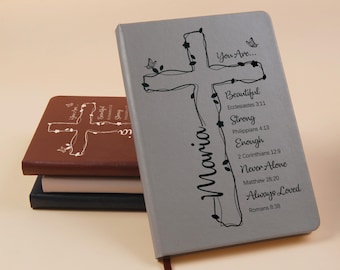 You Are...
Beautiful
Ecclesiastes 3:11
Strong
Philippians 4:13
Enough
2 Corinthians 12:9
Never Alone
Matthew 28:20
Always Loved
Romans 8:38
Maria